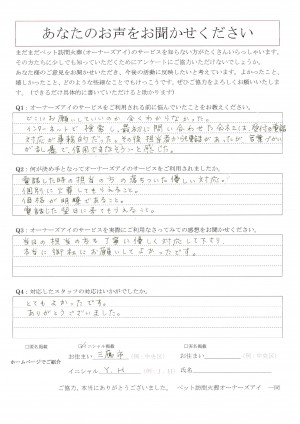 あなたのお声をお聞かせください
まだまだペット訪問火葬(オーナーズアイ)のサービスを知らない方がたくさんいらっしゃいます。
その方たちに少しでも知っていただくためにアンケートにご協力いただけないでしょうか。
あなた様のご意見をお聞かせいただき、今後の活動に反映したいと考えています。よかったこと、
嬉しかったこと、どのような些細なことでもけっこうです。ぜひご協力をよろしくお願いいたします。
(できるだけ具体的に書いていただけると助かります)
Q1：オーナーズアイのサービスをご利用される前に悩んでいたことをお教えください。
どこにお願いしていいのか、全くわからなかった。
インターネットで検索し、最初に問い合わせた会社は、受付の電話
対応が事務的だった。その後担当者から電話があったが、言葉づかい
が乱暴で、信用できなそうと感じた。
Q2：何が決め手となってオーナーズアイのサービスをご利用されましたか。
電話した時の担当の方の落ちついた優しい対応。
個別に火葬してもらえること。
価格が明瞭であること。
電話した翌日に来てもらえること。
Q3：オーナーズアイのサービスを実際にご利用なさってみての感想をお聞かせください。
当日の担当の方も丁寧に優しく対応して下さり、
本当に御社にお願いしてよかったです。
Q4：対応したスタッフの対応はいかがでしたか。
とてもよかったです。
ありがとうございました。
□実名掲載 イニシャル掲載 □実名掲載
ホームページでご紹介
お住まい 三鷹市 お住まい
イニシャル Y.M
ご協力、本当にありがとうございました。 ペット訪問火葬オーナーズアイ 一同